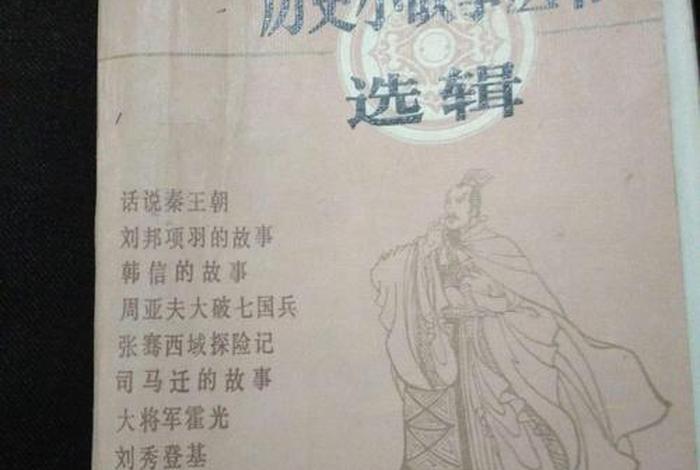 历史小故事丛书
选辑
话说秦王朝
刘邦项羽的故事
韩信的故事
周亚夫大破七国兵
张骞西域探险记
司马迁的故事
大将军霍光
刘秀登基